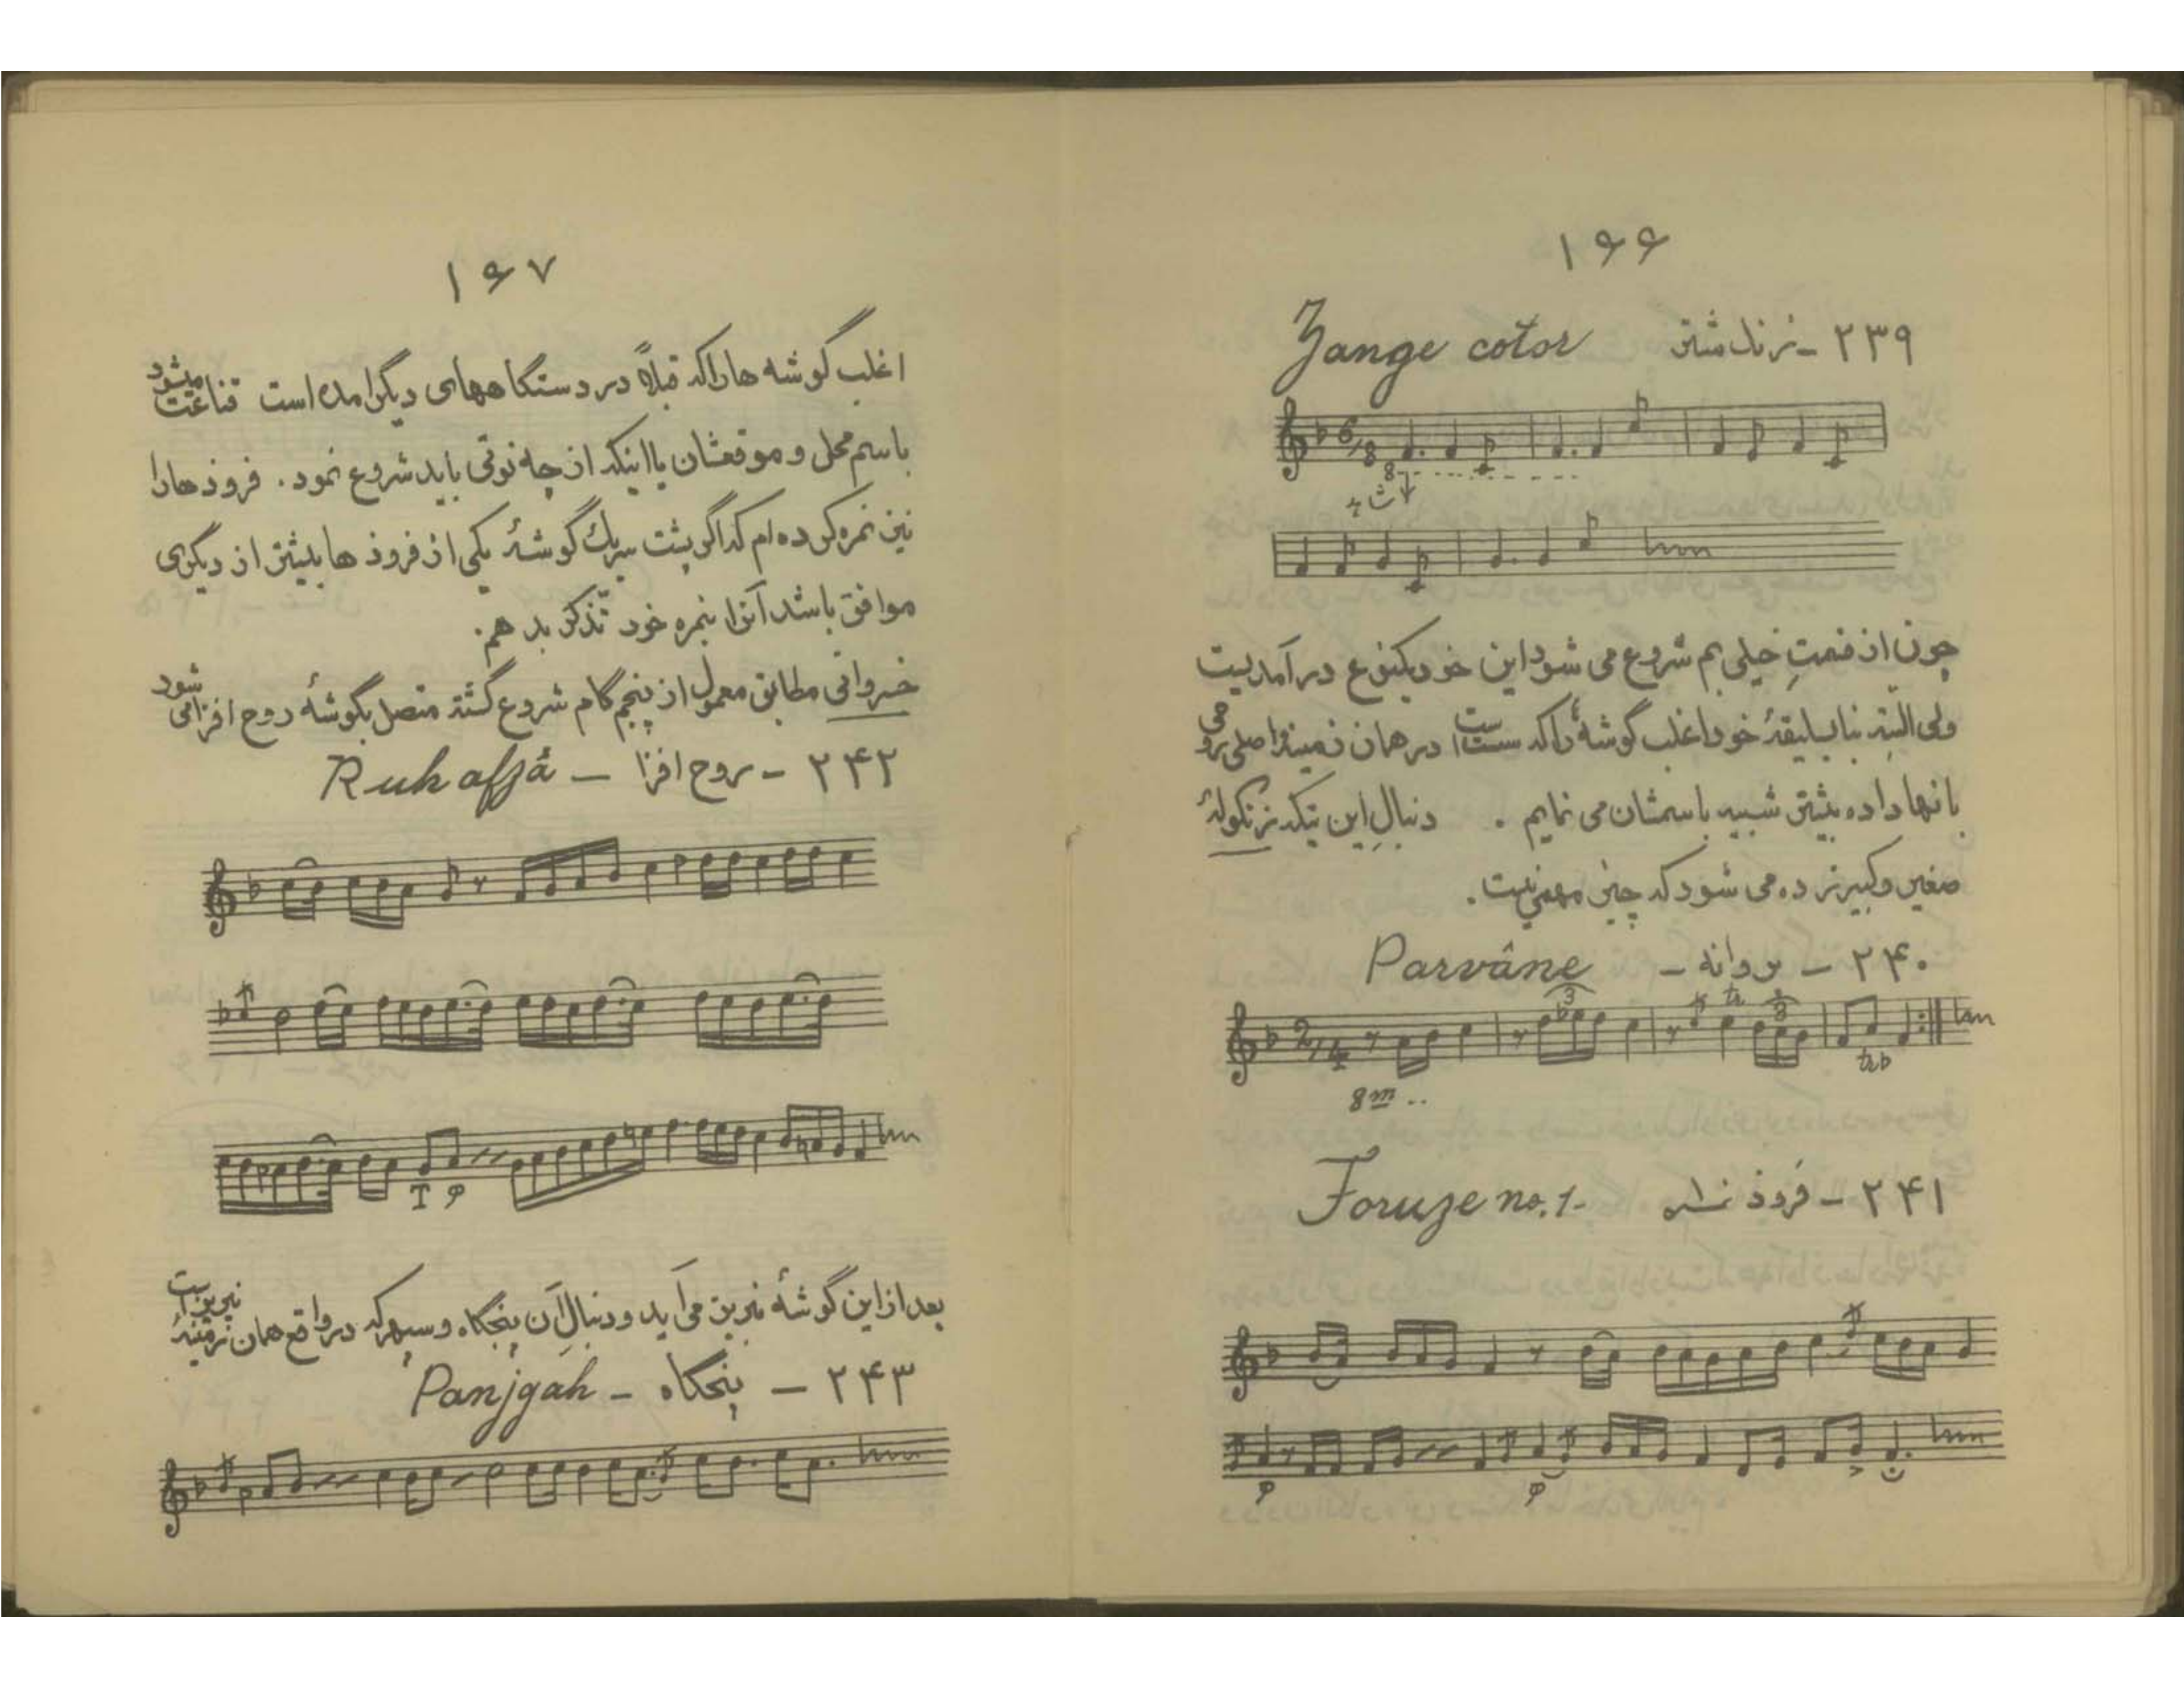 ۱۶۶
۲۳۹ - زنگ شتر Zange cotor
6/8
8
چون از قسمتِ خیلی بم شروع می شود این خود یکنوع درآمدیست
ولی البته بنا بسلیقهٔ خود اغلب گوشهٔ را که ست است در همان زمینهٔ اصلی
بانها داده بیشتر شبیه باسمشان می نمایم . دنبالِ این تیکه زنگولهٔ
صغیر و کبیر زده می شود که چیز مهمی نیست .
۲۴۰ - پروانه - Parvâne
2/4 3 tr 3 trb
8m ..
۲۴۱ - فرود نمره Foruze no. 1-
۱۶۷
اغلب گوشه ها را که قبلاً در دستگاههای دیگر آمده است قناعت میشود
باسم محل و موقعشان یا اینکه از چه نوتی باید شروع نمود . فرودها را
نیز نمره کرده ام که اگر پشت سر یک گوشهٔ یکی از فرودها بیشتر از دیگری
موافق باشد آنرا بنمره خود تذکر بدهم .
خسروانی مطابق معمول از پنجم گام شروع گشته متصل بگوشهٔ روح افزا می شود
۲۴۲ - روح افزا - Ruh afzâ
T
بعد از این گوشهٔ نیریز می آید و دنبالِ آن پنجگاه و سپهر که در واقع همان زمینهٔ نیریز است
۲۴۳ - پنجگاه - Panjgah